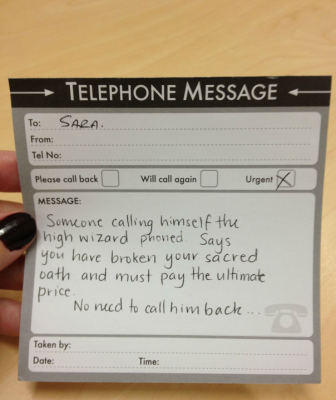 TELEPHONE MESSAGE
To: SARA.
From:
Tel No:
Please call back Will call again Urgent X
MESSAGE:
Someone calling himself the
high wizard phoned. Says
you have broken your sacred
oath and must pay the ultimate
price.
No need to call him back...
Taken by:
Date: Time: